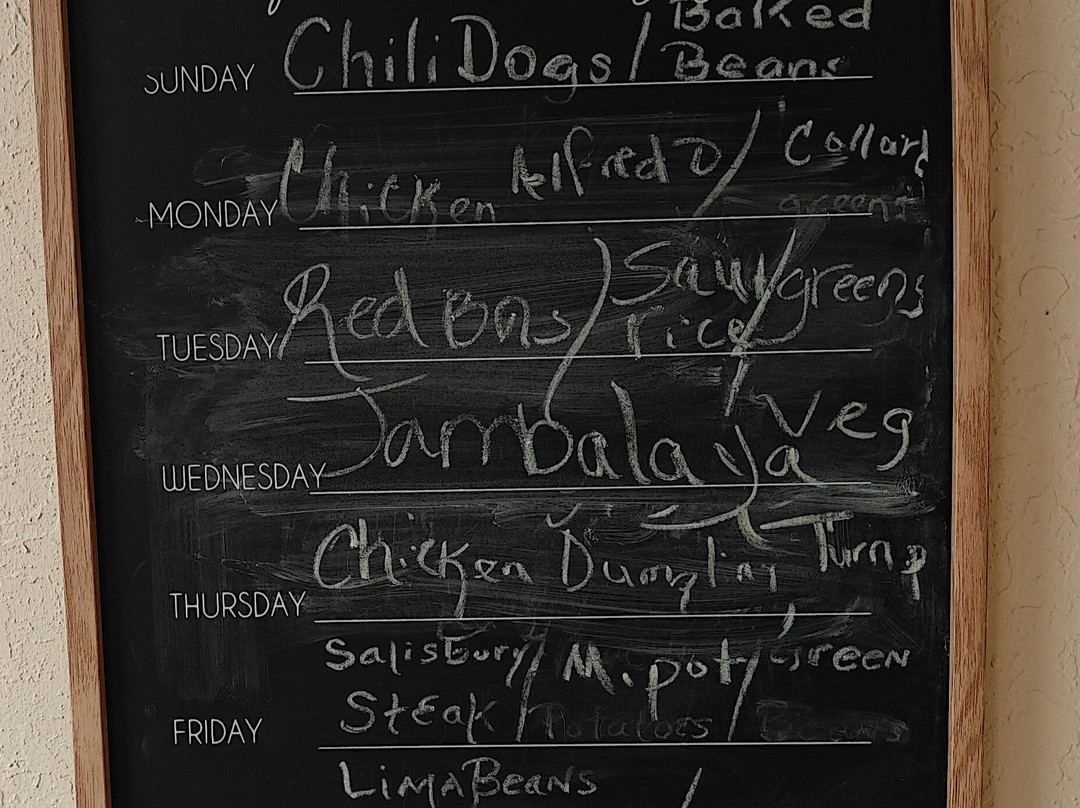 Baked
SUNDAY Chili Dogs / Beans
Chicken Alfredo / Collard
MONDAY greens
Red Bns / Saus / greens
TUESDAY rice
Jambalaya Veg
WEDNESDAY
Chicken Dumpling Turnp
THURSDAY
Salisbury / M. pot / Green
FRIDAY Steak / Potatoes / Beans
LIMA BEANS /